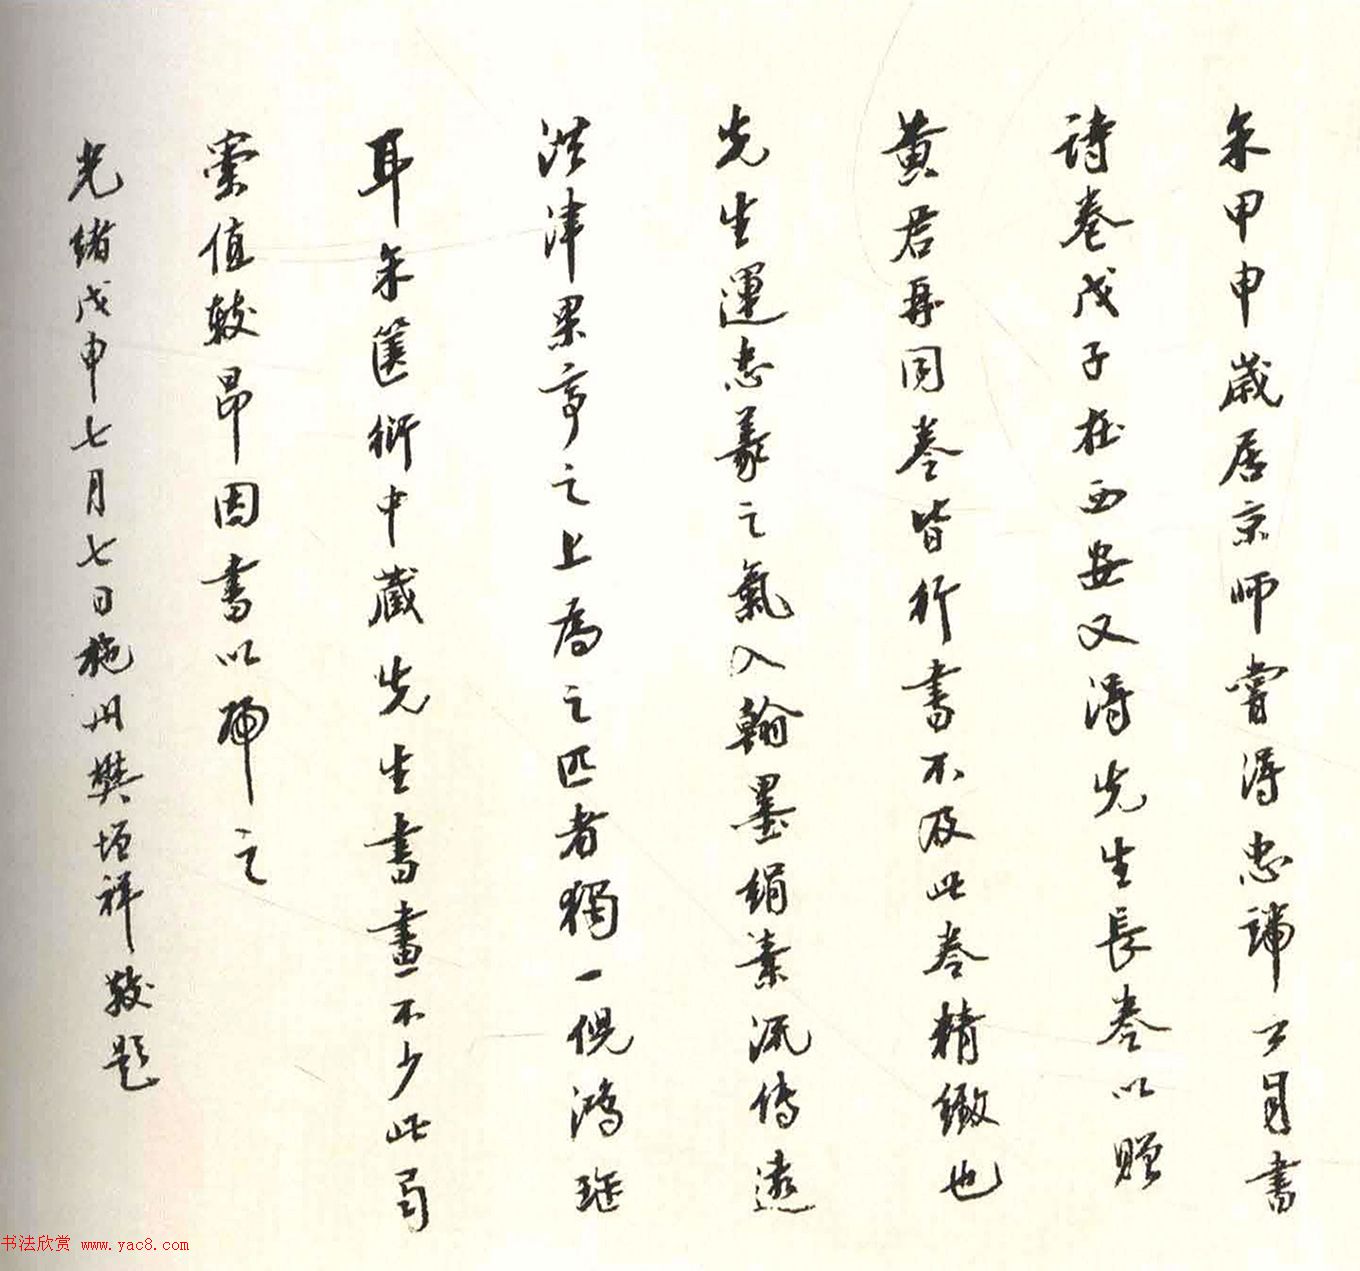 余甲申歲居京師嘗得忠端公自書
詩卷戊子在西安又得先生長卷以贈
黃君再同卷皆行書不及此卷精緻也
先生運忠義之氣入翰墨絹素流傳遠
洪津梁亭之上為之匹者獨一倪鴻
耳余篋衍中藏先生書畫不少此
索值較昂因書以歸之
光緒戊申七月七日施州樊增祥敬題
书法欣赏 www.yac8.com